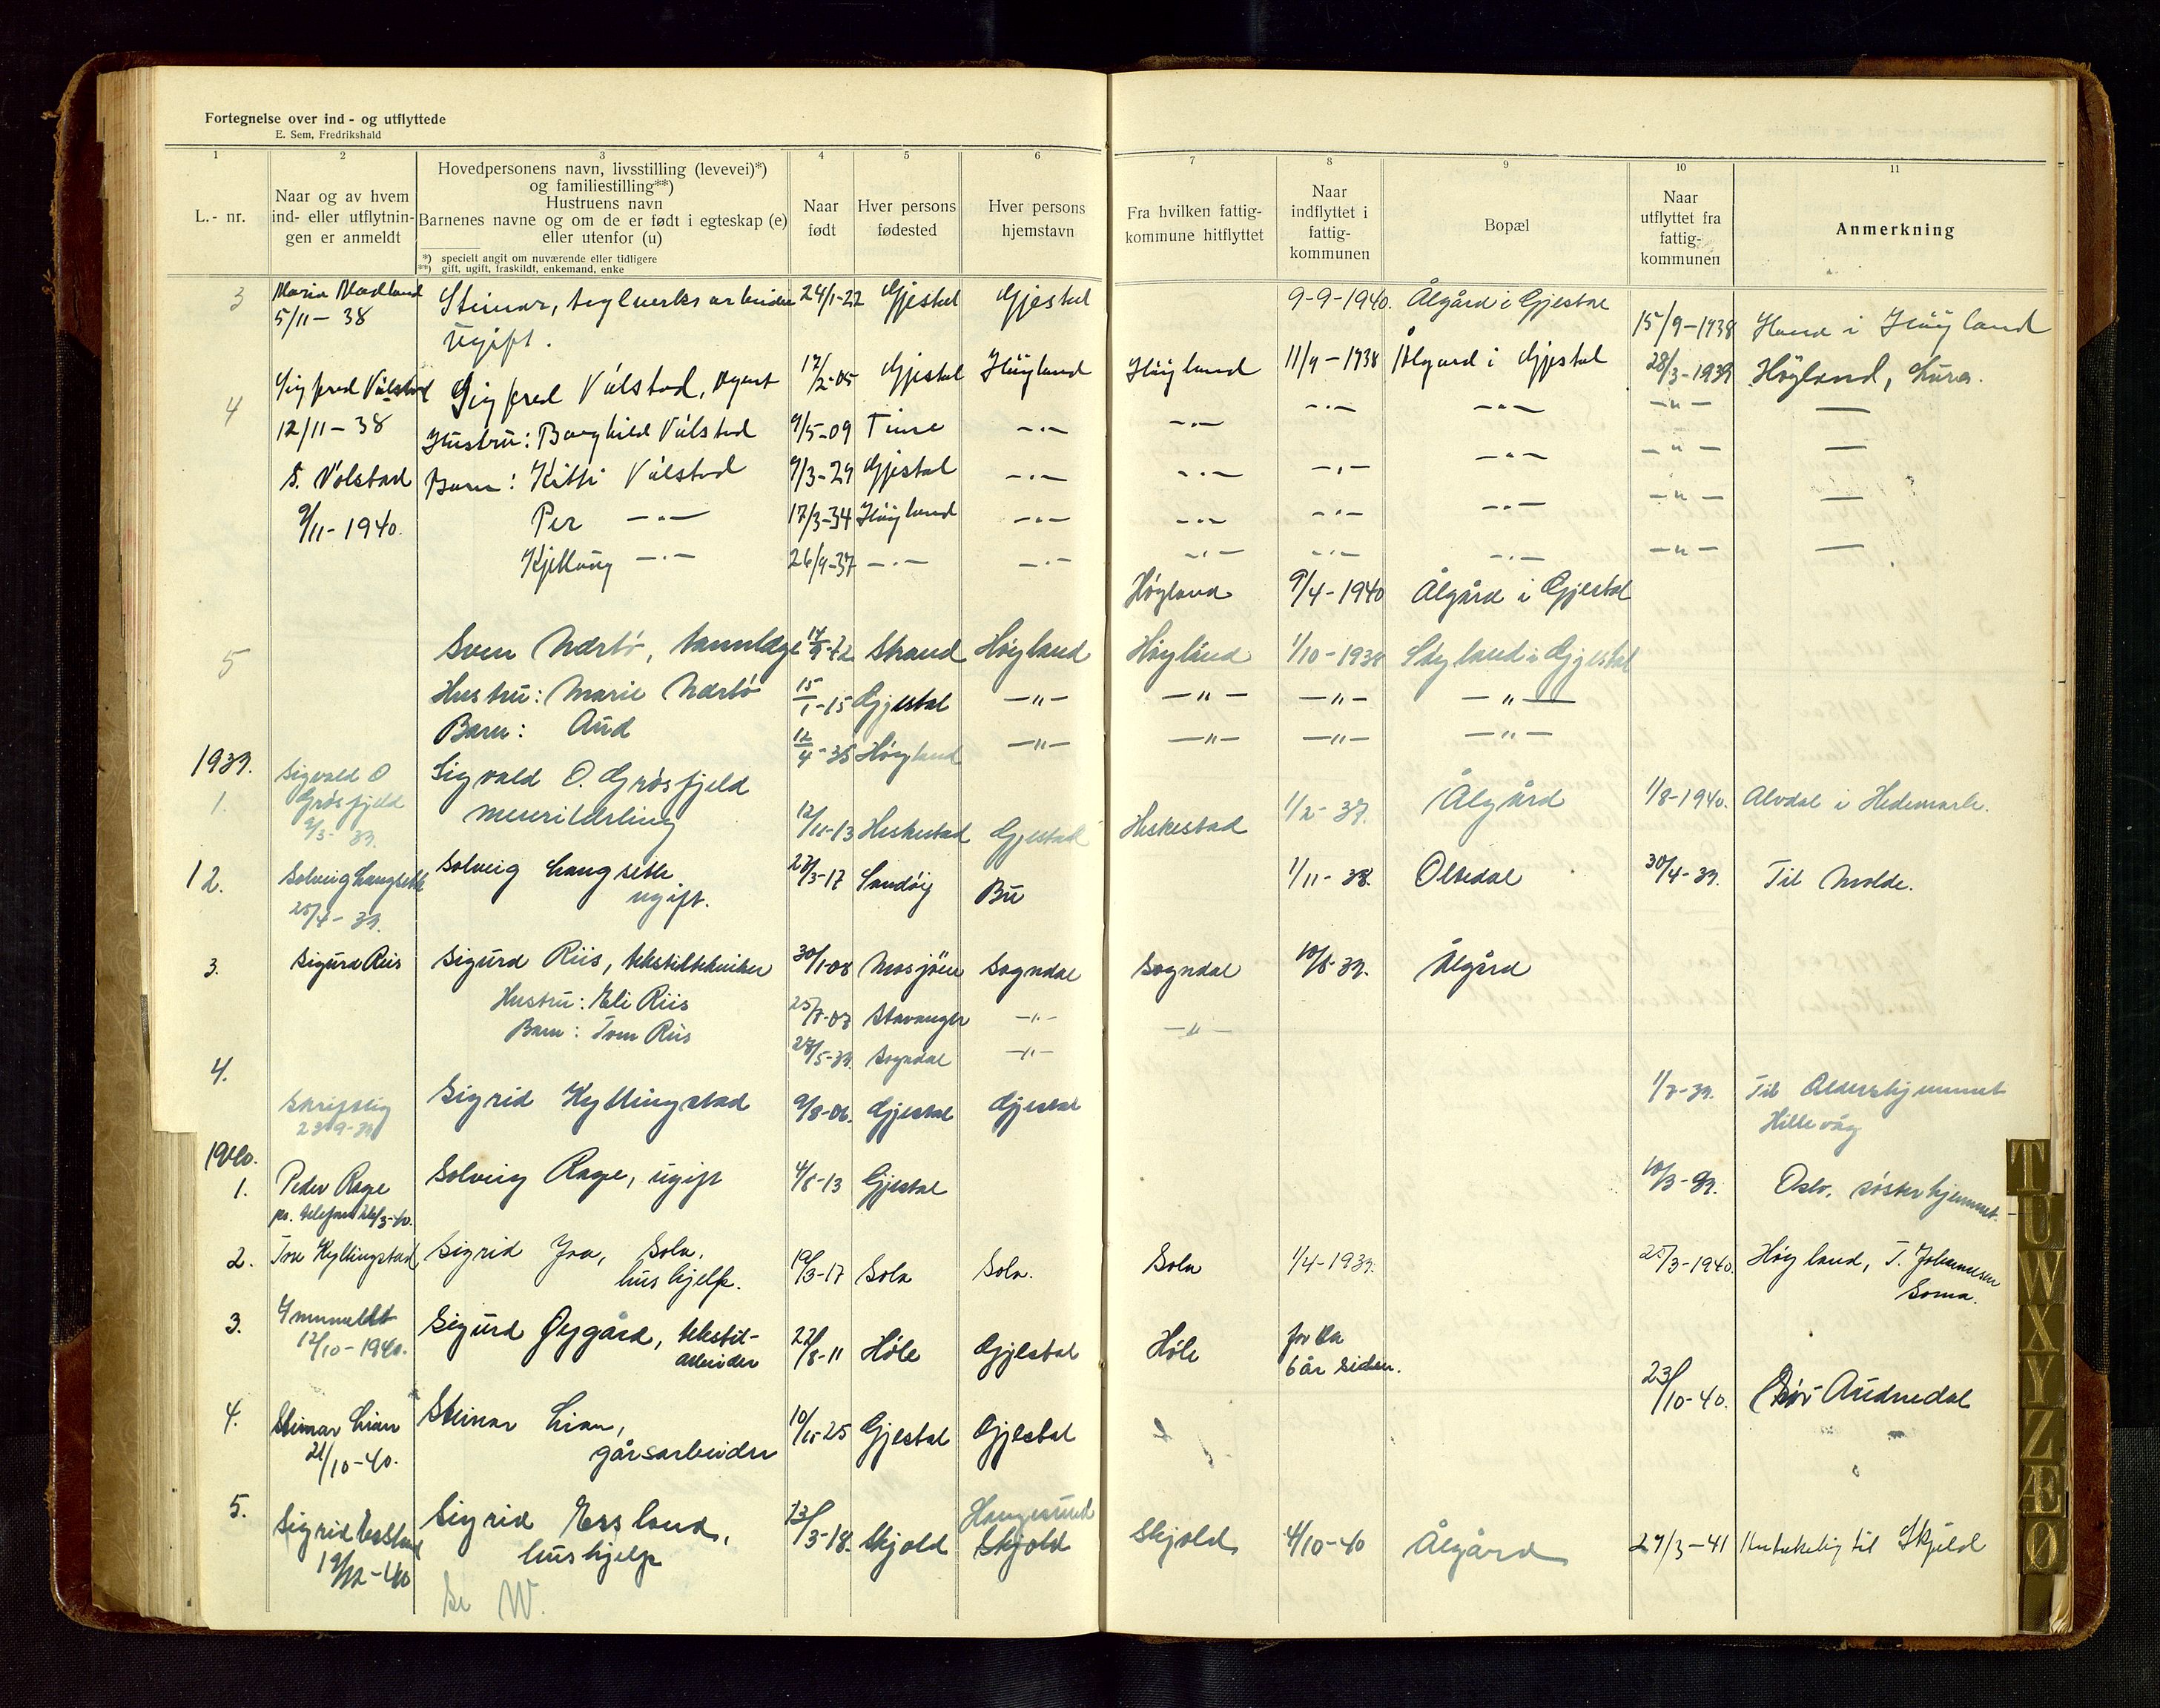 Fortegnelse over ind- og utflyttede
E. Sem, Fredrikshald
1 2 3 4 5 6 7 8 9 10 11
L.- nr.
Naar og av hvem
ind- eller utflytnin-
gen er anmeldt
Hovedpersonens navn, livsstilling (levevei)*)
og familiestilling**)
Hustruens navn
Barnenes navne og om de er født i egteskap (e)
eller utenfor (u)
*) specielt angit om nuværende eller tidligere
**) gift, ugift, fraskildt, enkemand, enke
Naar
født
Hver persons
fødested
Hver persons
hjemstavn
Fra hvilken fattig-
kommune hitflyttet
Naar
indflyttet i
fattig-
kommunen
Bopæl
Naar
utflyttet fra
fattig-
kommunen
Anmerkning
3 Maria Madland Steinar, teglverksarbeider 24/1-22 Gjestal Gjestal 9-9-1940. Ålgård i Gjestal
5/11-38 Ugift. 15/9-1938 Hana i Høyland
4 Sigfred Vålstad Sigfred Vålstad, Agent 17/2-05 Gjestal Høyland Høyland 11/9-1938 Ålgård i Gjestal 28/3-1939 Høyland, Lura.
12/11-38 Hustru: Borghild Vålstad 9/5-09 Time -"- -"- -"- -"- -"- —
S. Volstad Barn: Kitti Vålstad 9/3-29 Gjestal -"- -"- -"- -"- -"- —
9/11-1940. Per -"- 17/3-34 Høyland -"- -"- -"- -"- -"- —
Kjellaug -"- 26/9-37 -"- -"- -"- -"- -"- -"- —
Høyland 9/4-1940 Ålgård i Gjestal
5 Sven Nærbø, tannlæge 14/9-12 Strand Høyland Høyland 1/10-1938 i Gjestal
Hustru: Marie Nærbø 15/1-15 Gjestal -"- -"- -"- -"-
Barn: Aud 12/4-38 Høyland -"- -"- -"- -"-
1939.
1. Sigvald O Grøsfjeld 9/3-39. Sigvald O. Grøsfjeld
meierilærling 12/11-13 Heskestad Gjestal Heskestad 1/2-39. Ålgård 1/8-1940. Alvdal i Hedemark.
12. Solveig Langseth Solveig Langseth 27/3-17 Sandøy Bu 1/11-38. Oltedal 30/4-39. Til Molde.
25/4-39. ugift.
3. Sigurd Riis Sigurd Riis, tekstiltekniker 30/1-08 Mosjöen Sogndal Sogndal 10/8-39. Ålgård
Hustru: Eli Riis 25/8-07 Stavanger -"- -"-
Barn: Tom Riis 28/5-39. Sogndal -"-
4. Skriftlig 23/9-39 Sigrid Kyllingstad 9/8-06. Gjestal Gjestal 1/7-39. Til Aldershjemmet
Hillevåg
1940.
1. Peder Rage Solveig Rage, ugift 4/8-13 Gjestal 10/3-39. Oslo, søsterhjemmet.
pr. telefon 26/3-40.
2. Tore Kyllingstad Sigrid Joa, Sola. 19/3-17 Sola Sola. Sola 1/4-1939. 25/3-1940. Høyland, T. Johannesen
hushjelp. Soma.
3. Ummeldt Sigurd Øygård, tekstil- 22/8-11 Høle Gjestal Høle for ca
12/10-1940. arbeider 6 år siden.
4. Steinar Lian Steinar Lian, 10/11-25 Gjestal Gjestal 23/10-40. Sør-Audnedal
21/10-40. gårsarbeider
5. Sigrid Essland Sigrid Essland, 13/3-18. Skjold Haugesund Skjold Skjold 4/10-40 Ålgård 27/3-41 til Skjold
19/12-40 hushjelp
Se W.
T
U
W
X
Y
Z
Æ
Ø